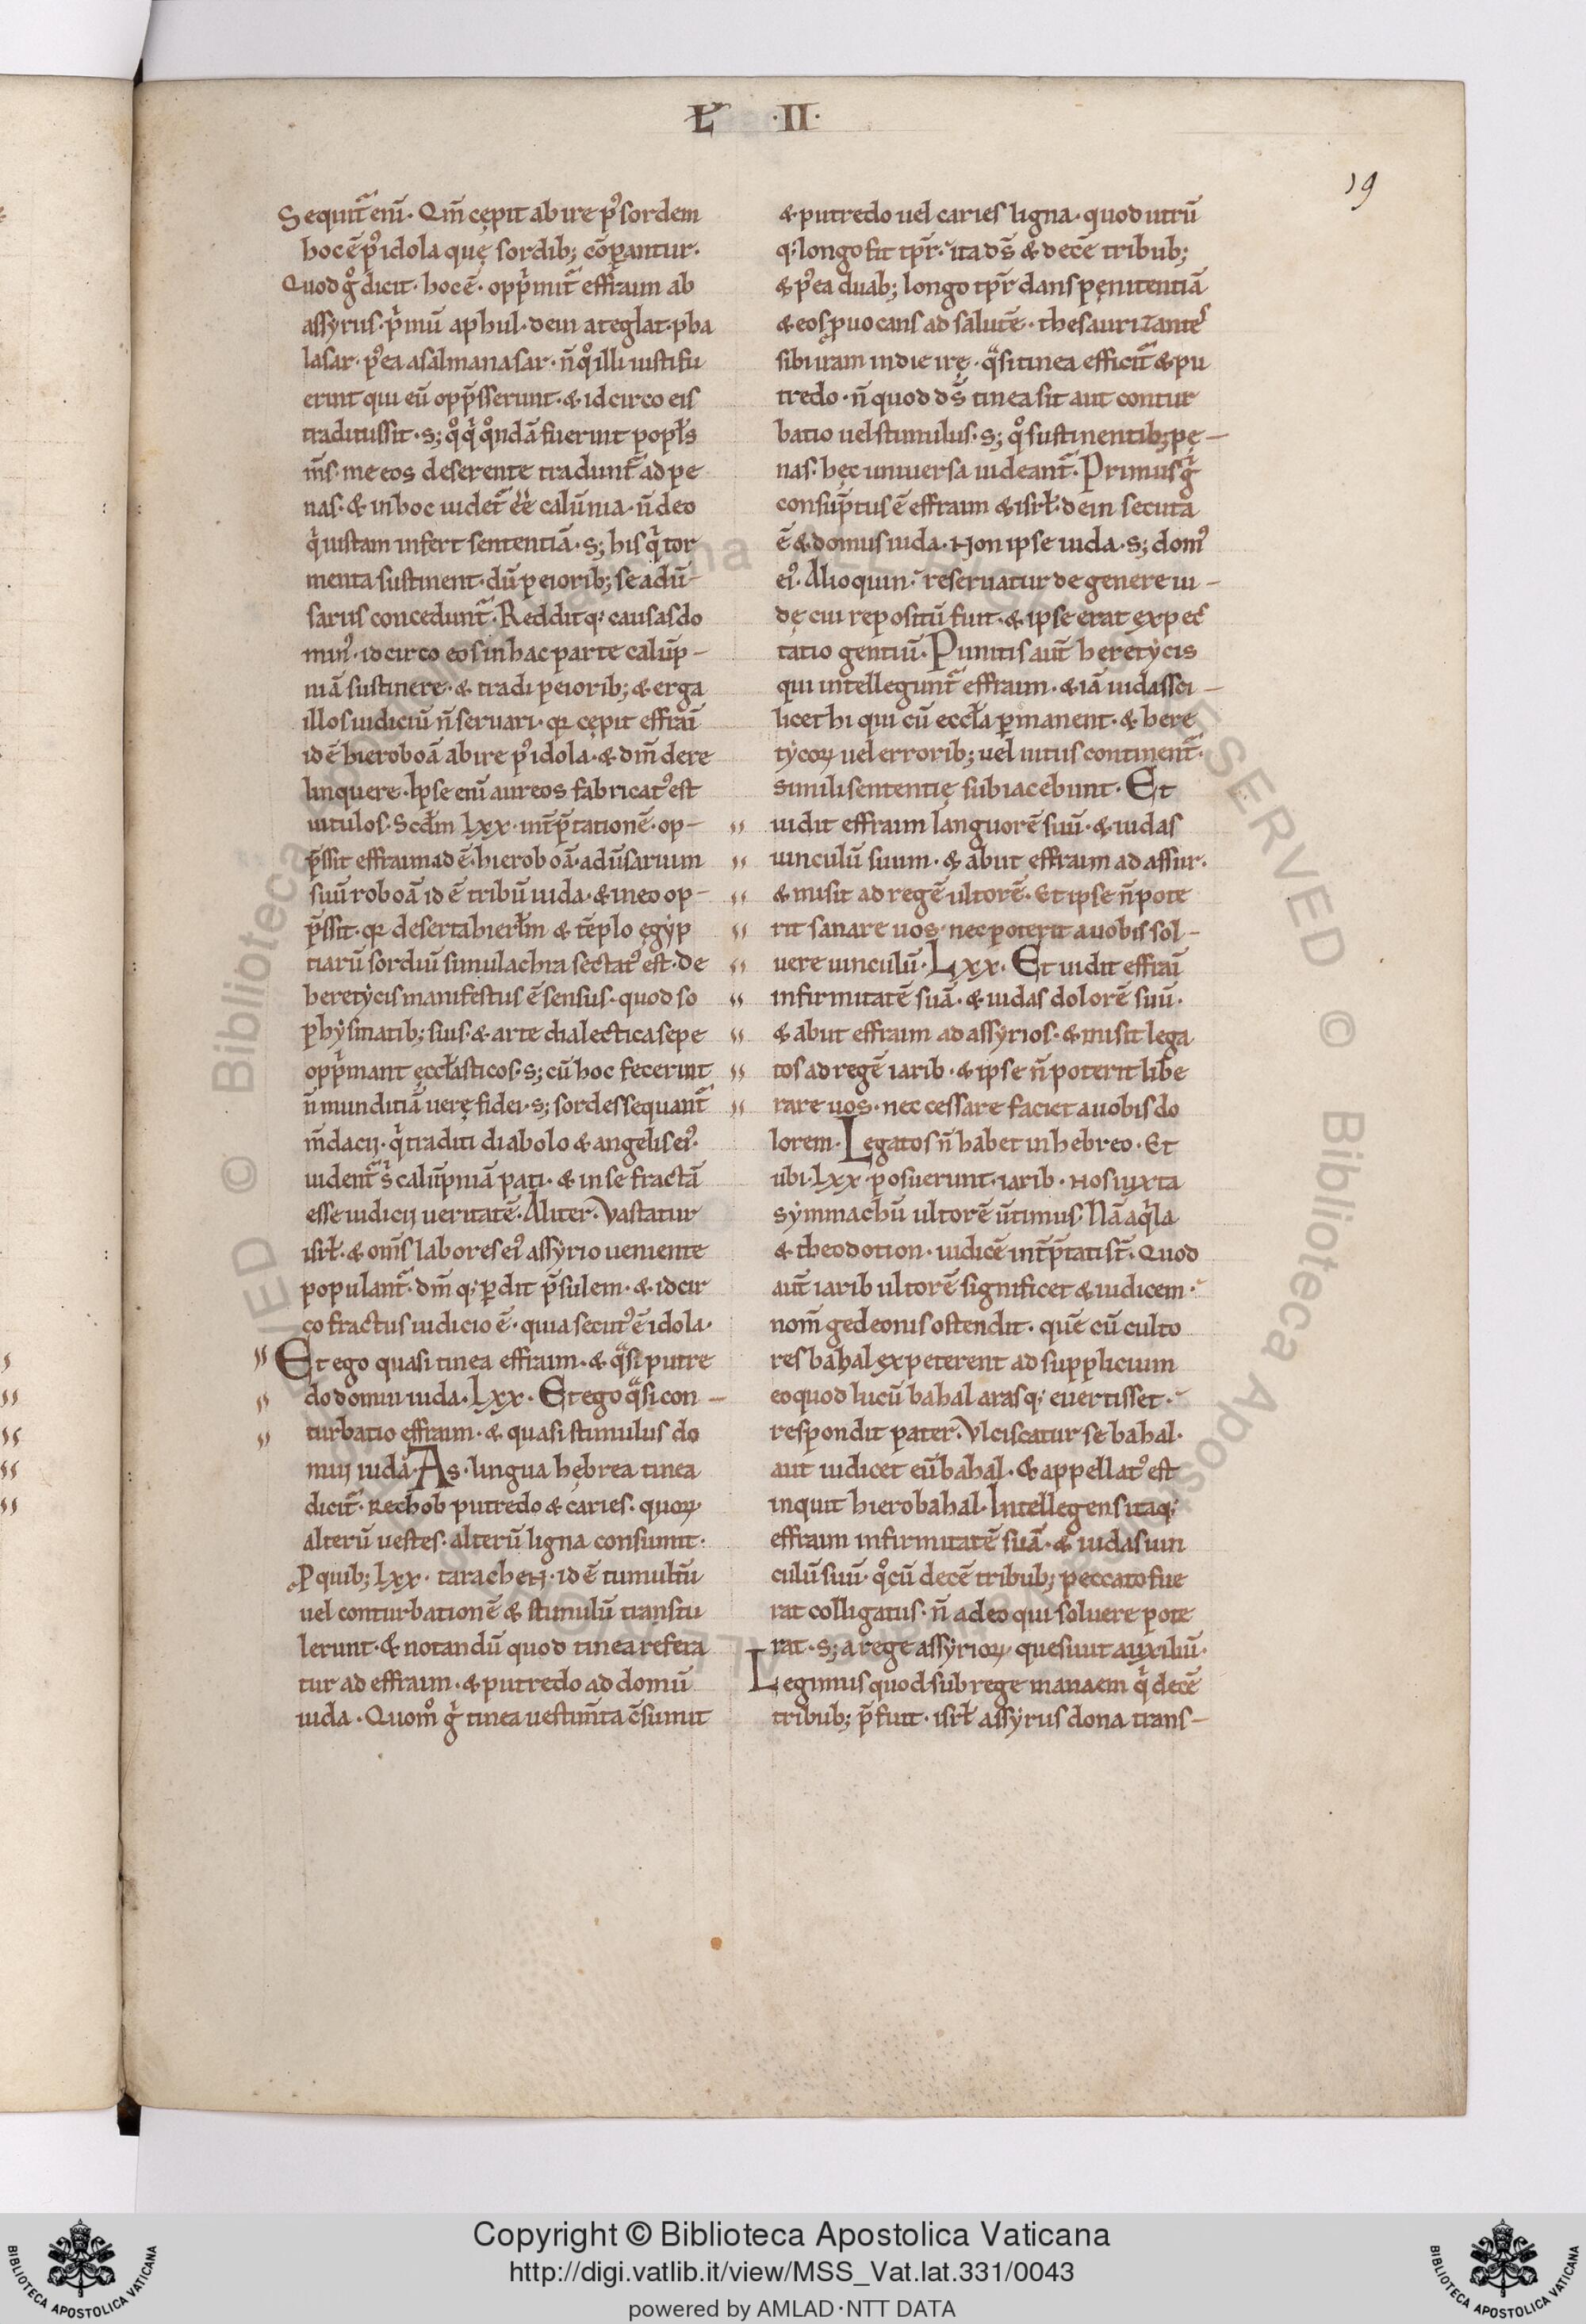 L · II ·
19
Sequit᷑ enī. Qm̄ cępit abire pꝰ sordem
hoc ē pꝰ idola quę sordib; cōꝑantur.
Quod gͦ dicit. hoc ē. opp̄mit᷑ effraim ab
assyrus. p̄mū aphul. dein ateglat. pha
lasar. pꝰea asalmanasar. n̄ qͦ illi iusti fu
erint qui eū opp̄sserunt. & idcirco eis
traditus sit. s; qͦ qͥ qͦndā fuerint popl̄s
m̄s. me eos deserente tradunt᷑ ad pe
nas. & in hoc uidet᷑ eē calūnia. n̄ deo
qͥ iustam infert sententiā. s; his qͥ tor
menta sustinent. dū peiorib; se adū-
sarus concedunt᷑. Redditq; causas do
minꝰ. idcirco eos in hac parte calūp-
niā sustinere. & tradi peiorib; & erga
illos iudiciū n̄ seruari. qꝛ cępit effraī
id ē hieroboā abire pꝰ idola. & dm̄ dere
linquere. Ipse enī aureos fabricatꝰ est
uitulos. Scdm̄ lxx. int̄p̄tationē. op-
p̄ssit effraim id ē. hieroboā. adūsarium
suū roboā id ē tribū iuda. & in eo op-
p̄ssit. qꝛ deserta hierl̄m & tēplo ęgyp
tiarū sordiū simulachra sectatꝰ est. De
heretycis manifestus ē sensus. quod so
physmatib; suis. & arte dialectica sepe
opp̄mant ęccl̄asticos. s; cū hoc fecerint
n̄ munditiā uerę fidei. s; sordes sequant᷑
m̄dacij. qͥ traditi diabolo & angelis eiꝰ.
uident᷑ sͥ calūpniā pati. & in se fractā
esse iudicij ueritatē. Aliter. Vastatur
isrl̄. & om̄s labores eiꝰ assyrio ueniente
populant᷑. dm̄ q; ꝑdit p̄sulem. & idcir
co fractus iudicio ē. quia secutꝰ ē idola.
Et ego quasi tinea effraim. & qͣsi putre
do domui iuda. Lxx. Et ego qͣsi con-
turbatio effraim. & quasi stimulus do
mui iuda. As. lingua hebrea tinea
dicit᷑. Rechob putredo & caries. quoꝝ
alterū uestes. alterū ligna consumit.
P quib; lxx. tarachen. id ē tumultū
uel conturbationē & stimulū transtu
lerunt. & notandū quod tinea refera
tur ad effraim. & putredo ad domū
iuda. Quom̊ gͥ tinea uestim̄ta c̄sumit
& putredo uel caries ligna. quod utrū
q; longo fit tp̄r. ita ds̄ & decē tribub;
& pꝰea duab; longo tp̄r dans pęnitentiā
& eos ꝓuocans ad salutē. thesaurizantes
sibi iram in die irę. qͣsi tinea efficit᷑ & pu
tredo. n̄ quod ds̄ tinea sit aut contur
batio uel stimulus. s; qͦ sustinentib; pę-
nas. hęc uniuersa uideant᷑. Primus gͥ
consūptus ē effraim & isrl̄. dein secuta
ē & domus iuda. Non ipse iuda. s; domꝰ
eiꝰ. Alioquin reseruatur de genere iu-
dę cui repositū fuit. & ipse erat expec
tatio gentiū. Punitis aut̄ heretycis
qui intellegunt᷑ effraim. & iā iudas sci-
licet hi qui cū eccl̄a ꝑmanent. & here
tycoꝝ uel errorib; uel uitiis continent᷑.
simili sententię subiacebunt. Et
uidit effraim languorē suū. & iudas
uinculū suum. & abiit effraim ad assur.
& misit ad regē ultorē. Et ipse n̄ pote
rit sanare uos. nec poterit a uobis sol-
uere uinculū. Lxx. Et uidit effraī
infirmitatē suā. & iudas dolorē suū.
& abiit effraim ad assyrios. & misit lega
tos ad regē iarib. & ipse n̄ poterit libe
rare uos. nec cessare faciet a uobis do
lorem. Legatos n̄ habet in hebreo. Et
ubi. lxx. posuerunt. iarib. nos iuxta
symmachū ultorē ūtimus. Nā aqͥla
& theodotion. iudicē int̄p̄tati st̄. Quod
aut̄ iarib ultorē significet & iudicem.
nom̄ gedeonis ostendit. quē cū culto
res bahal expeterent ad supplicium
eo quod lucū bahal arasq; euertisset.
respondit pater. Vlciscatur se bahal.
aut iudicet eū bahal. & appellatꝰ est
inquit hierobahal. Intellegens itaq;
effraim infirmitatē suā. & iudas uin
culū suū. qͦ cū decē tribub; peccato fue
rat colligatus. n̄ a deo qui soluere pote
rat. s; a rege assyrioꝝ quesiuit auxiliū.
Legimus quod sub rege manaem qͥ decē
tribub; p̄fuit. isrl̄ assyrus dona trans-
Copyright © Biblioteca Apostolica Vaticana
http://digi.vatlib.it/view/MSS_Vat.lat.331/0043
powered by AMLAD·NTT DATA
BIBLIOTECA APOSTOLICA VATICANA
BIBLIOTECA APOSTOLICA VATICANA